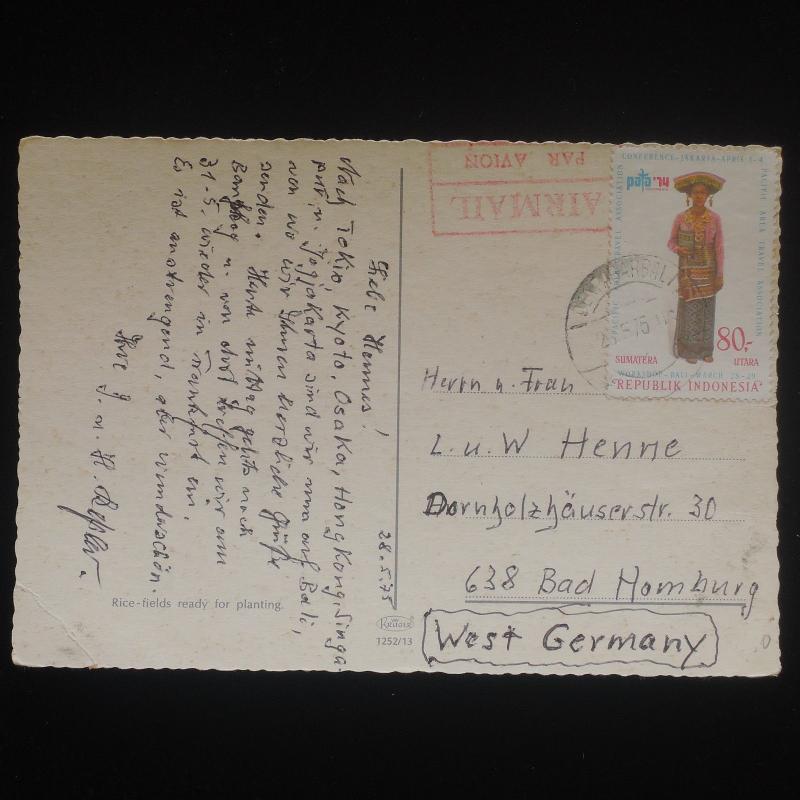 28.5.75
Liebe Hennes!
Nach Tokio, Kyoto, Osaka, Hongkong, Singa-
pur u. Jogjakarta sind wir nun auf Bali,
von wo wir Ihnen herzliche Grüße
senden. Heute mittag gehts nach
Bangkog u. von dort treffen wir am
31.5. wieder in Frankfurt ein.
Es ist anstrengend, aber wunderschön.
Ihre
u. H.
Rice-fields ready for planting.
KRÜGER
1252/13
AIRMAIL
PAR AVION
CONFERENCE-JAKARTA-APRIL 1-4
PACIFIC AREA TRAVEL ASSOCIATION
PACIFIC AREA TRAVEL ASSOCIATION
pata '74
80,-
SUMATERA UTARA
WORKSHOP-BALI-MARCH 28-29
"REPUBLIK INDONESIA"
Herrn u. Frau
L. u. W Henne
Dornholzhäuserstr. 30
638 Bad Homburg
West Germany